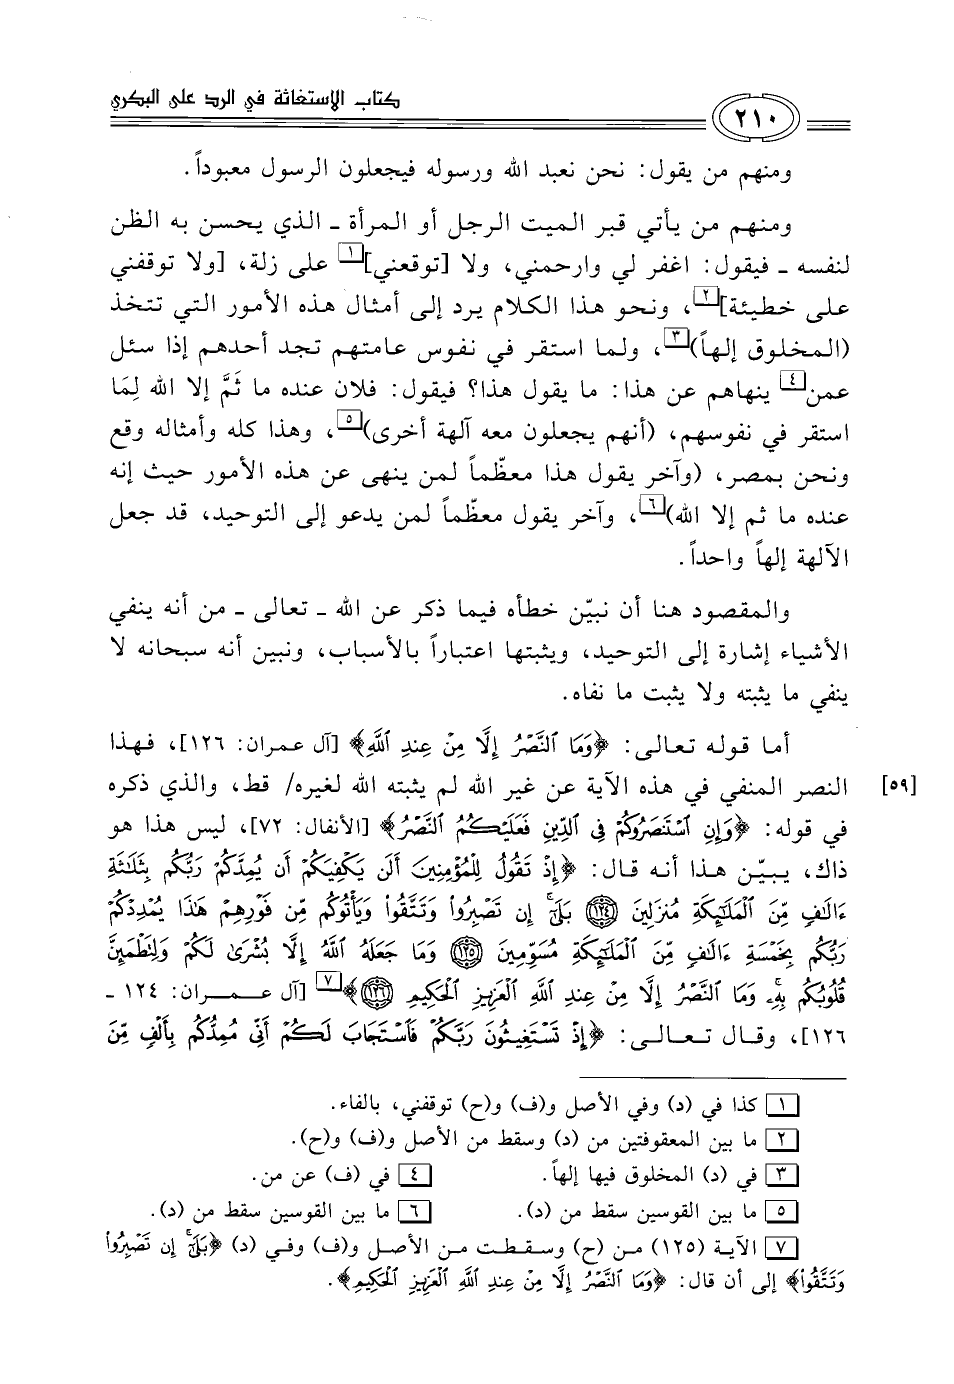 كتاب الاستغاثة في الرد على البكري
٢١٠
ومنهم من يقول: نحن نعبد الله ورسوله فيجعلون الرسول معبوداً.
ومنهم من يأتي قبر الميت الرجل أو المرأة ـ الذي يحسن به الظن
لنفسه ـ فيقول: اغفر لي وارحمني، ولا [توقعني]١ على زلة، [ولا توقفني
على خطيئة]٢، ونحو هذا الكلام يرد إلى أمثال هذه الأمور التي تتخذ
(المخلوق إلهاً)٣، ولما استقر في نفوس عامتهم تجد أحدهم إذا سئل
عمن٤ ينهاهم عن هذا: ما يقول هذا؟ فيقول: فلان عنده ما ثَمَّ إلا الله لِمَا
استقر في نفوسهم، (أنهم يجعلون معه آلهة أخرى)٥، وهذا كله وأمثاله وقع
ونحن بمصر، (وآخر يقول هذا معظّماً لمن ينهى عن هذه الأمور حيث إنه
عنده ما ثم إلا الله)٦، وآخر يقول معظّماً لمن يدعو إلى التوحيد، قد جعل
الآلهة إلهاً واحداً.
والمقصود هنا أن نبيّن خطأه فيما ذكر عن الله ـ تعالى ـ من أنه ينفي
الأشياء إشارة إلى التوحيد، ويثبتها اعتباراً بالأسباب، ونبين أنه سبحانه لا
ينفي ما يثبته ولا يثبت ما نفاه.
أما قوله تعالى: ﴿وَمَا ٱلنَّصْرُ إِلَّا مِنْ عِندِ ٱللَّهِ﴾ [آل عمران: ١٢٦]، فهذا
النصر المنفي في هذه الآية عن غير الله لم يثبته الله لغيره/ قط، والذي ذكره [٥٩]
في قوله: ﴿وَإِنِ ٱسْتَنصَرُوكُمْ فِى ٱلدِّينِ فَعَلَيْكُمُ ٱلنَّصْرُ﴾ [الأنفال: ٧٢]، ليس هذا هو
ذاك، يبيّن هذا أنه قال: ﴿إِذْ تَقُولُ لِلْمُؤْمِنِينَ أَلَن يَكْفِيَكُمْ أَن يُمِدَّكُمْ رَبُّكُم بِثَلَٰثَةِ
ءَالَٰفٍ مِّنَ ٱلْمَلَٰٓئِكَةِ مُنزَلِينَ ١٢٤ بَلَىٰٓ إِن تَصْبِرُوا۟ وَتَتَّقُوا۟ وَيَأْتُوكُم مِّن فَوْرِهِمْ هَٰذَا يُمْدِدْكُمْ
رَبُّكُم بِخَمْسَةِ ءَالَٰفٍ مِّنَ ٱلْمَلَٰٓئِكَةِ مُسَوِّمِينَ ١٢٥ وَمَا جَعَلَهُ ٱللَّهُ إِلَّا بُشْرَىٰ لَكُمْ وَلِتَطْمَئِنَّ
قُلُوبُكُم بِهِۦ وَمَا ٱلنَّصْرُ إِلَّا مِنْ عِندِ ٱللَّهِ ٱلْعَزِيزِ ٱلْحَكِيمِ ١٢٦﴾٧ [آل عـمـران: ١٢٤ ـ
١٢٦]، وقال تعالى: ﴿إِذْ تَسْتَغِيثُونَ رَبَّكُمْ فَٱسْتَجَابَ لَكُمْ أَنِّى مُمِدُّكُم بِأَلْفٍ مِّنَ
١ كذا في (د) وفي الأصل و(ف) و(ح) توقفني، بالفاء.
٢ ما بين المعقوفتين من (د) وسقط من الأصل و(ف) و(ح).
٣ في (د) المخلوق فيها إلهاً. ٤ في (ف) عن من.
٥ ما بين القوسين سقط من (د). ٦ ما بين القوسين سقط من (د).
٧ الآية (١٢٥) من (ح) وسقطت من الأصل و(ف) وفي (د) ﴿بَلَىٰٓ إِن تَصْبِرُوا۟
وَتَتَّقُوا۟﴾ إلى أن قال: ﴿وَمَا ٱلنَّصْرُ إِلَّا مِنْ عِندِ ٱللَّهِ ٱلْعَزِيزِ ٱلْحَكِيمِ﴾.